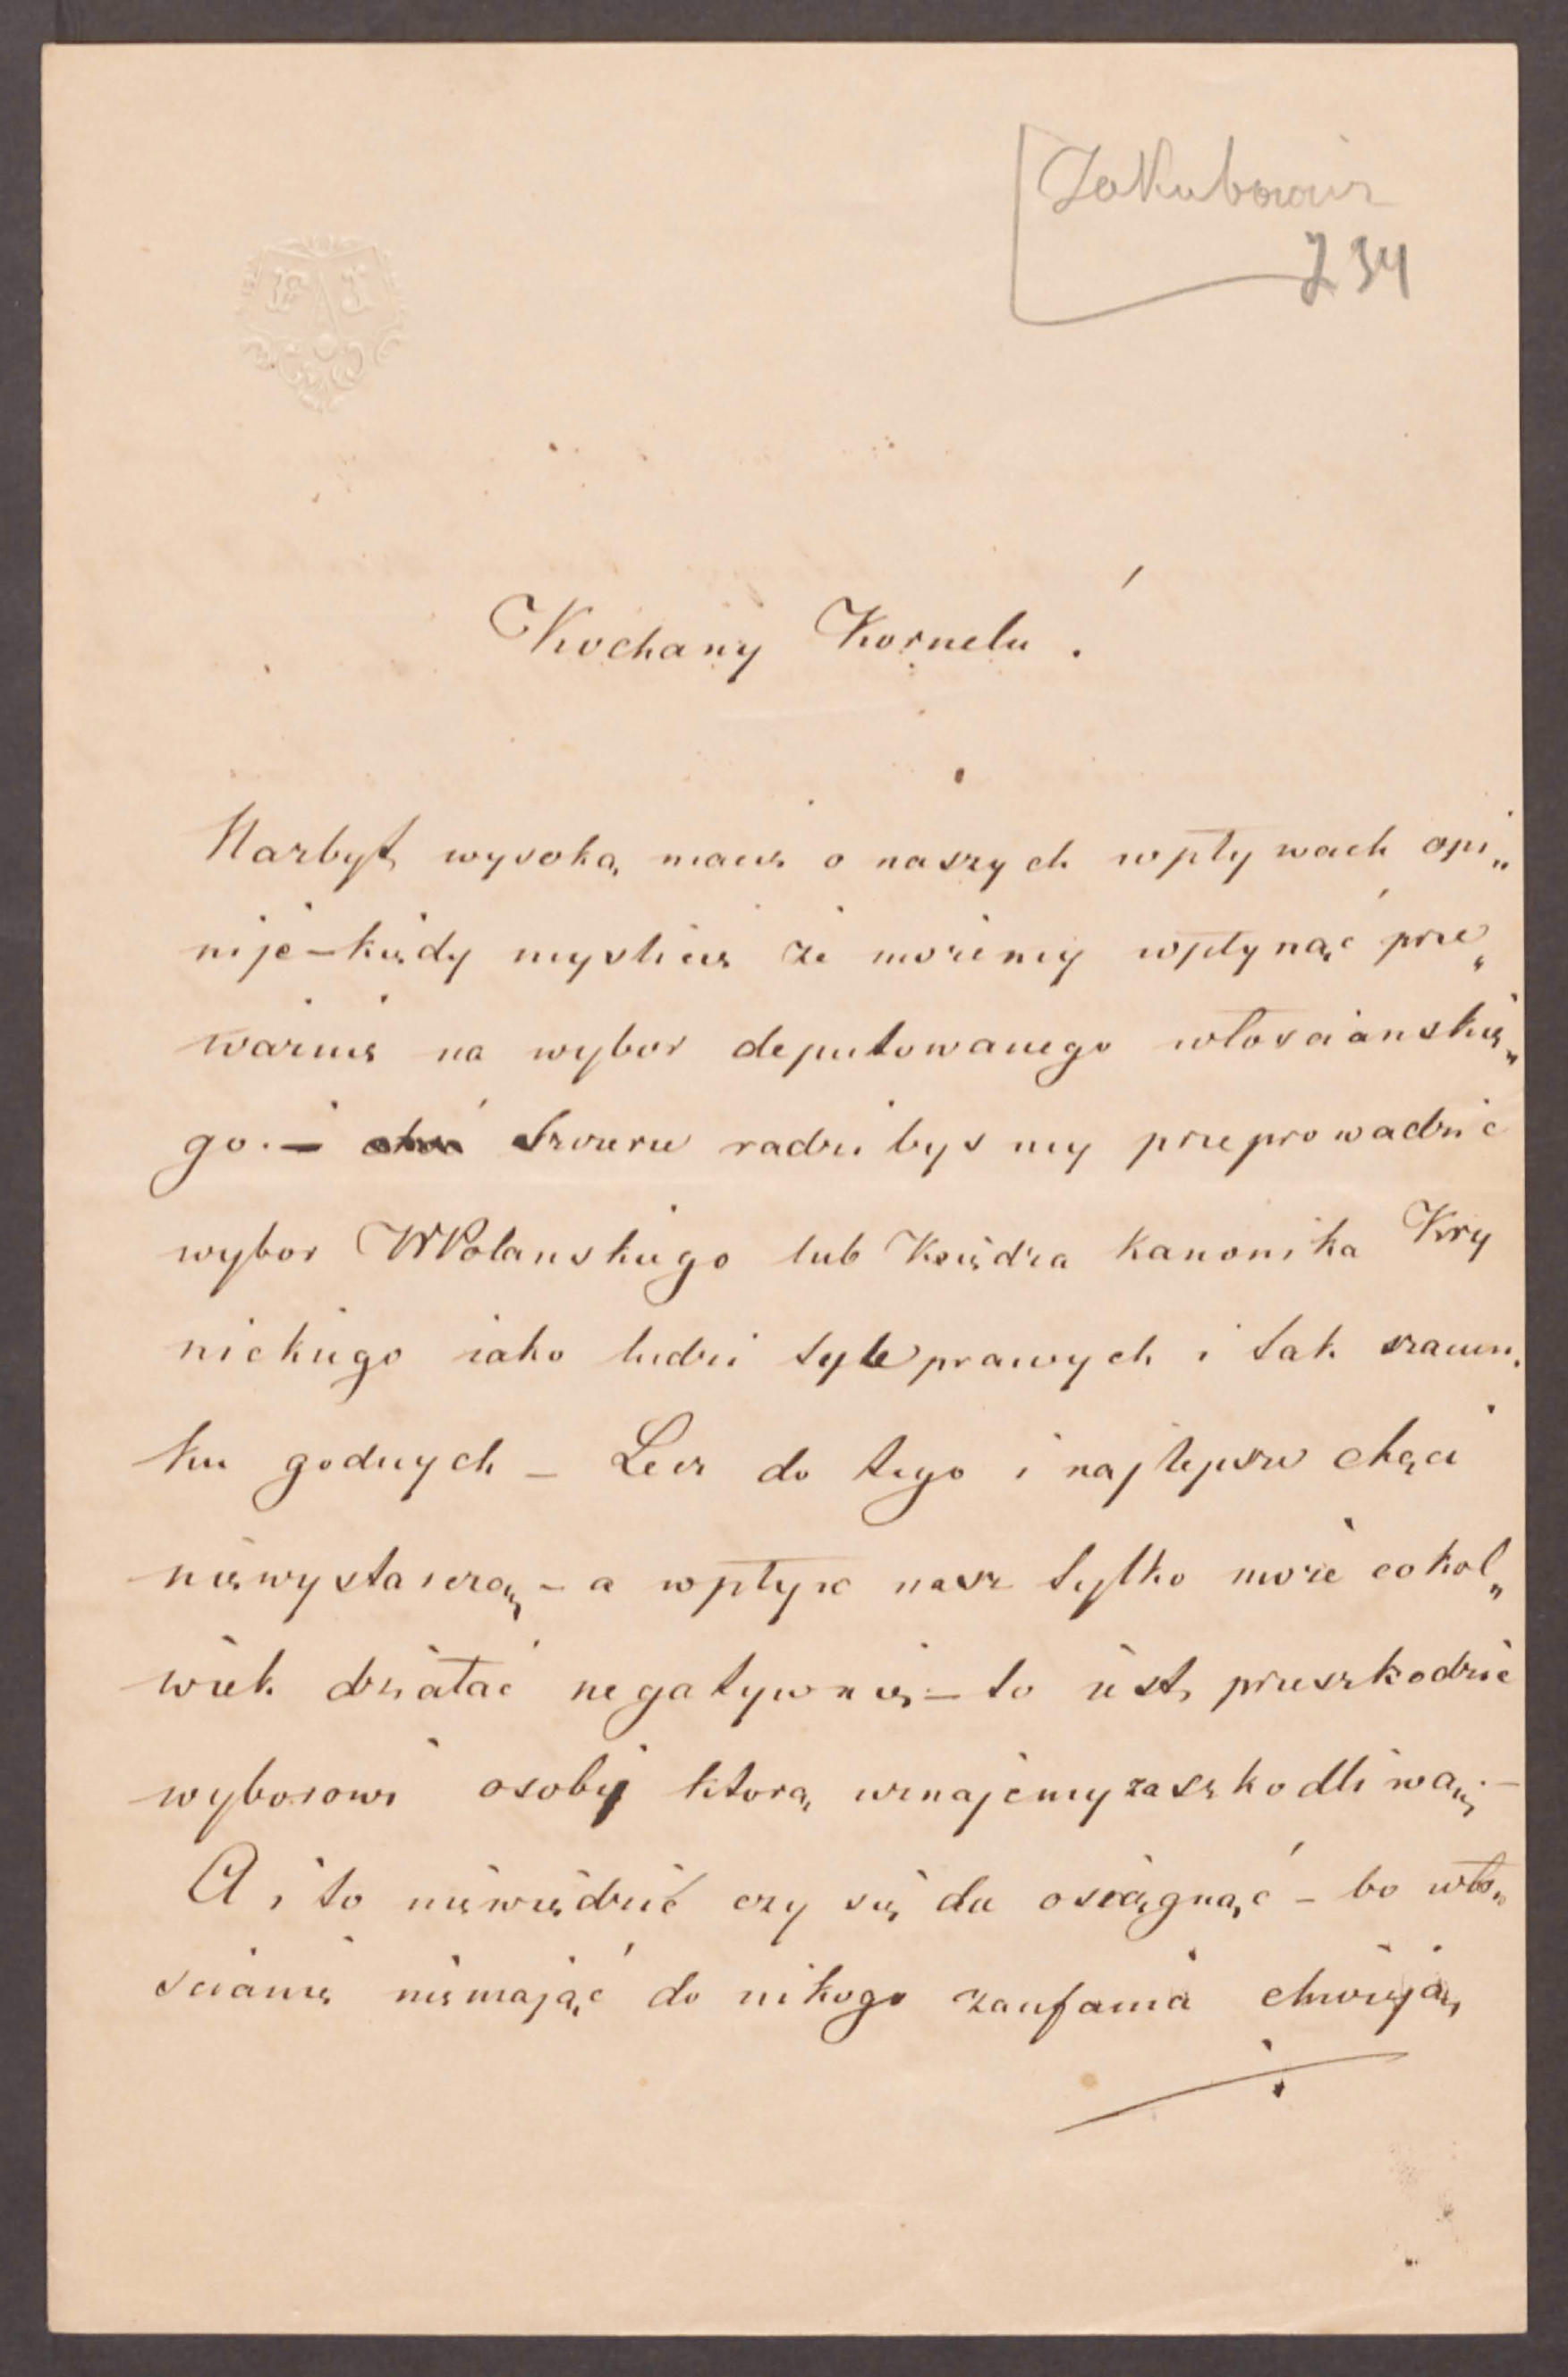 Jakubowicz
234
Kochany Kornelu!
Nazbyt wysoką masz o naszych wpływach opi„
nije – kiedy myslisz że możemy wpłynąć prze„
ważnie na wybor deputowanego włoscianskie„
go. – Szczerze radzi bysmy przeprowadzić
wybor WPolanskiego lub Księdza kanonika Kry
nickiego iako ludzi tyle prawych i tak szacun„
ku godnych – Lecz do tego i najlepsze chęci
niewystarczą – a wpływ nasz tylko może cokol„
wiek działać negatywnie – to iest, przeszkodzić
wyborowi osoby ktorą uznajemy za szkodliwą. –
A i to niewiedzieć czy się da osiągnąć – bo wło„
scianie niemając do nikogo zaufania chwieją